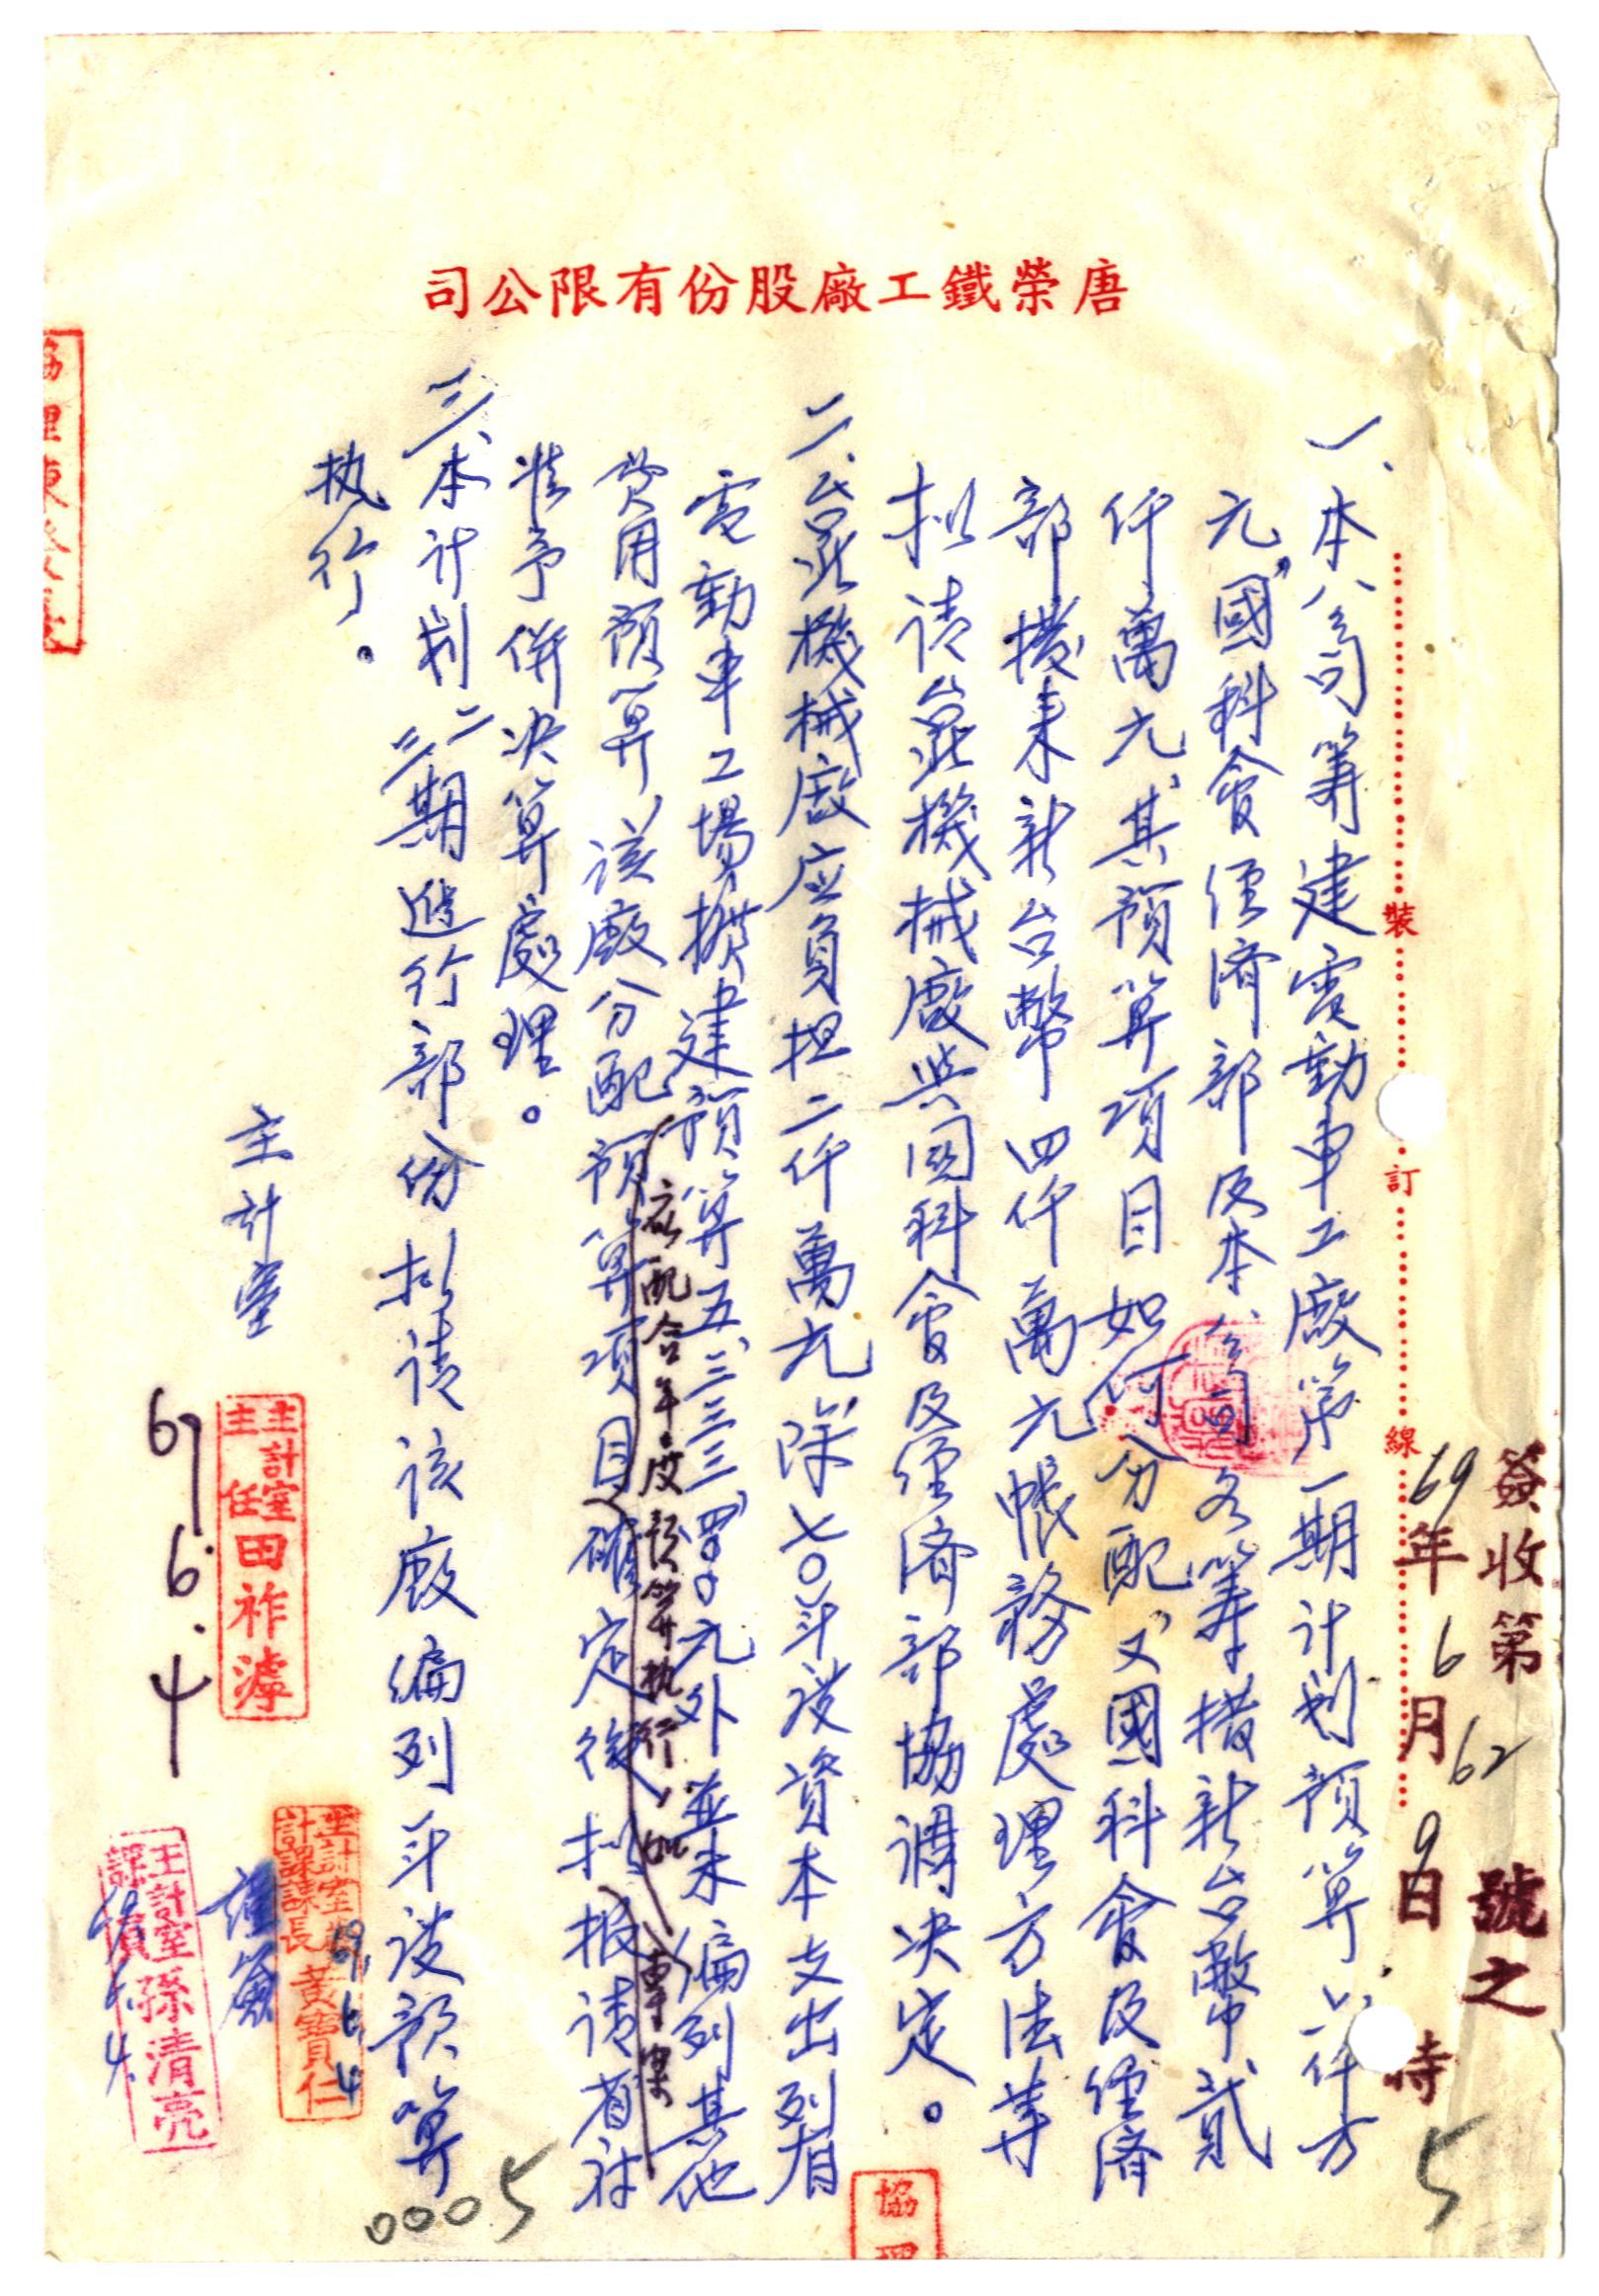 唐榮鐵工廠股份有限公司
簽收第62號之
69年6月9日 時
5
裝
訂
線
一、本公司籌建電動車工廠第一期計划預算六仟万
元，國科會經濟部及本公司各籌措新台幣貳
仟萬元，其預算項目如何分配，又國科會及經濟
部撥來新台幣四仟萬元帳務處理方法等
拟請台北機械廠與国科會及經濟部協調决定。
二、台北機械廠应負担二仟萬元除七〇年度資本支出列有
電動車工場擴建預算五、三三三、四〇〇元外並未編列其他
費用預算，該廠分配預算項目確定後拟報請省府
應配合年度預算执行，如專案
准予併决算處理。
三、本計划二三期進行部份拟請該廠編列年度預算
执行。
主計室
主計室主任田祚濬
69.6.4
主計室計課課長黃寶仁
69.6.4
主計室課員孫清亮
謹簽
協理
0005